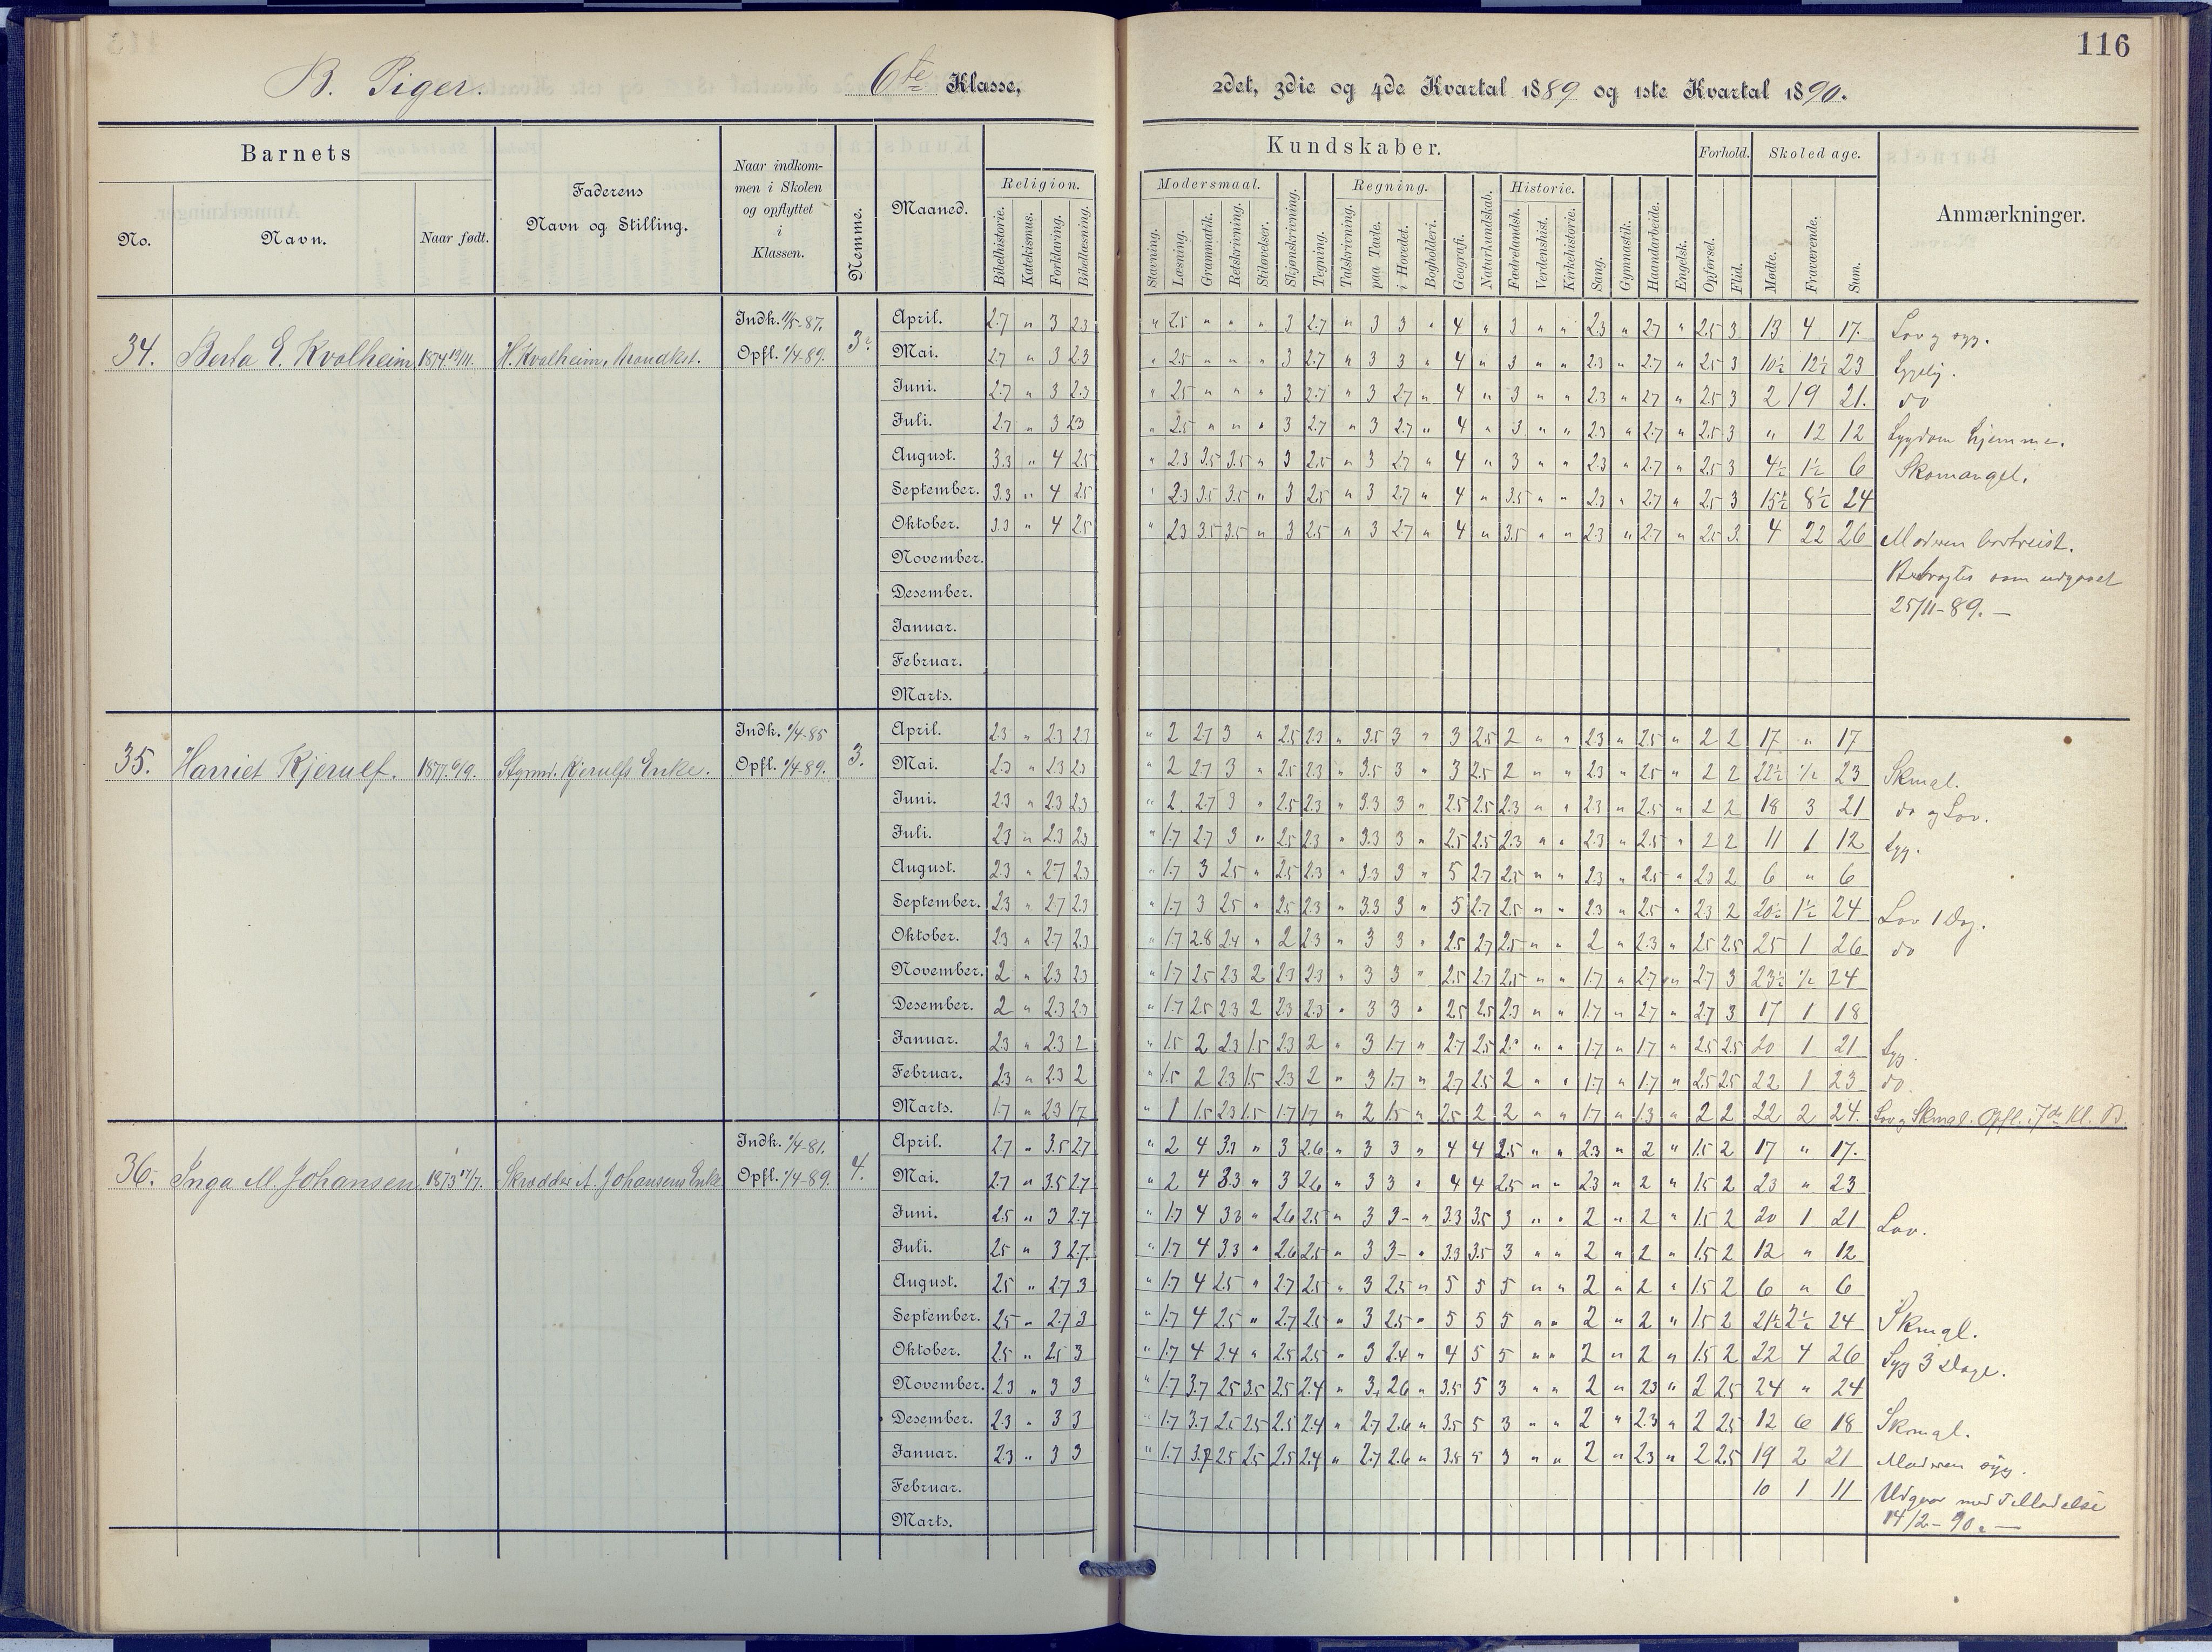 116
B. Piger. 6te Klasse, 2det, 3die og 4de Kvartal 1889 og 1ste Kvartal 1890.
Barnets
No.
Navn.
Naar født.
Faderens
Navn og Stilling.
Naar indkom-
men i Skolen
og opflyttet
i
Klassen.
Nemme.
Maaned.
Religion.
Bibelhistorie.
Katekismus.
Forklaring.
Bibellæsning.
Kundskaber.
Modersmaal.
Stavning.
Læsning.
Grammatik.
Retskrivning.
Stiløvelser.
Skjønskrivning.
Tegning.
Regning.
Talskrivning.
paa Tavle.
i Hovedet.
Bogholderi.
Geografi.
Naturkundskab.
Historie.
Fædrelandsh.
Verdenshist.
Kirkehistorie.
Sang.
Gymnastik.
Haandarbeide.
Engelsk.
Forhold.
Opførsel.
Flid.
Skoledage.
Mødte.
Fraværende.
Sum.
Anmærkninger.
34. Berta E. Kvalheim 1874 H. Kvalheim,
Indk. 11/5-87.
Opfl. 1/4-89.
April. 2.7 " 3 2.3 " 2.5 " " " 3 2.7 " 3 3 " 4 " 3 " " 2.3 " 2.7 " 2.5 3 13 4 17. Lov og syg.
Mai. 2.7 " 3 2.3 " 2.5 " " " 3 2.7 " 3 3 " 4 " 3 " " 2.3 " 2.7 " 2.5 3 10½ 12½ 23 Sygelig.
Juni. 2.7 " 3 2.3 " 2.5 " " " 3 2.7 " 3 2.7 " 4 " 3 " " 2.3 " 2.7 " 2.5 3 2 19 21. do
Juli. 2.7 " 3 2.3 " 2.5 " " " 3 2.7 " 3 2.7 " 4 " 3 " " 2.3 " 2.7 " 2.5 3 " 12 12 Sygdom hjemme.
August. 3.3 " 4 2.5 " 2.3 3.5 3.5 " 3 2.5 " 3 2.7 " 4 " 3 " " 2.3 " 2.7 " 2.5 3 4½ 1½ 6 Skomangel.
September. 3.3 " 4 2.5 " 2.3 3.5 3.5 " 3 2.5 " 3 2.7 " 4 " 3.5 " " 2.3 " 2.7 " 2.5 3 15½ 8½ 24
Oktober. 3.3 " 4 2.5 " 2.3 3.5 3.5 " 3 2.5 " 3 2.7 " 4 " 3.5 " " 2.3 " 2.7 " 2.5 3. 4 22 26 Moderen bortreist.
November. Betragtes som udgaaet
Desember. 25/11-89. —
Januar.
Februar.
Marts.
35. Harriet Kjerulf. 1877 Styrmd. Kjerulfs Enke. 3.
Indk. 1/4-85
Opfl. 1/4-89.
April. 2.3 " 2.3 2.3 " 2 2.7 3 " 2.5 2.3 " 3.5 3 " 3 2.5 2 " " 2.3 " 2.5 " 2 2 17 " 17
Mai. 2.3 " 2.3 2.3 " 2 2.7 3 " 2.5 2.3 " 3.5 3 " 3 2.5 2 " " 2.3 " 2.5 " 2 2 22½ 1/2 23 Skmgl.
Juni. 2.3 " 2.3 2.3 " 2. 2.7 3 " 2.5 2.3 " 3.3 3 " 2.5 2.5 2.3 " " 2.3 " 2.5 " 2 2 18 3 21 do og Lov.
Juli. 2.3 " 2.3 2.3 " 1.7 2.7 3 " 2.5 2.3 " 3.3 3 " 2.5 2.5 2.3 " " 2.3 " 2.5 " 2 2 11 1 12 Syg.
August. 2.3 " 2.7 2.3 " 1.7 3 2.5 " 2.5 2.3 " 3.3 3 " 5 2.7 2.5 " " 2.3 " 2.5 " 2.3 2 6 " 6
September. 2.3 " 2.7 2.3 " 1.7 3 2.5 " 2.5 2.3 " 3.3 3 " 5 2.7 2.5 " " 2.3 " 2.5 " 2.3 2 20½ 1½ 24 Lov 1 Dag.
Oktober. 2.3 " 2.7 2.3 " 1.7 2.8 2.4 " 2 2.3 " 3 3 " 2.5 2.7 2.5 " " 2 " 2.3 " 2.5 2.5 25 1 26 do
November. 2 " 2.3 2.3 " 1.7 2.5 2.3 2 2.3 2.3 " 3 3 " 2.5 2.7 2.5 " " 1.7 " 2.7 " 2.7 3 23½ 1/2 24
Desember. 2 " 2.3 2.3 " 1.7 2.5 2.3 2 2.3 2.3 " 3 3 " 2.5 2.5 2.3 " " 1.7 " 2.7 " 2.7 3 17 1 18
Januar. 2.3 " 2.3 2 " 1.5 2 2.3 1.5 2.3 2 " 3 1.7 " 2.7 2.5 2 " " 1.7 " 1.7 " 2.5 2.5 20 1 21 Syg.
Februar. 2.3 " 2.3 2 " 1.5 2 2.3 1.5 2.3 2 " 3 1.7 " 2.7 2.5 2 " " 1.7 " 1.7 " 2.5 2.5 22 1 23 do.
Marts. 1.7 " 2.3 1.7 " 1 1.5 2.3 1.5 1.7 1.7 " 2 1.5 " 2.5 2 2 " " 1.7 " 1.3 " 2 2 22 2 24. Lov og Skmgl. Opfl. i 7de Kl. B.
36. Inga M. Johansen 1873 17/7. Skrædder A. Johansens Enke 4.
Indk. 1/4-81.
Opfl. 1/4-89.
April. 2.7 " 3.5 2.7 " 2 4 3.3 " 3 2.6 " 3 3 " 4 4 2.5 " " 2.3 " 2 " 1.5 2 17 " 17.
Mai. 2.7 " 3.5 2.7 " 2 4 3.3 " 3 2.6 " 3 3 " 4 4 2.5 " " 2.3 " 2 " 1.5 2 23 " 23
Juni. 2.5 " 3 2.7 " 1.7 4 3.3 " 2.6 2.5 " 3 3- " 3.3 3.5 3 " " 2 " 2 " 1.5 2 20 1 21 Lov.
Juli. 2.5 " 3 2.7. " 1.7 4 3.3 " 2.6 2.5 " 3 3- " 3.3 3.5 3 " " 2 " 2 " 1.5 2 12 " 12
August. 2.5 " 2.7 3 " 1.7 4 2.5 " 2.7 2.5 " 3 2.5 " 5 5 5 " " 2 " 2 " 1.5 2 6 " 6
September. 2.5 " 2.7 3 " 1.7 4 2.5 " 2.7 2.5 " 3 2.5 " 5 5 5 " " 2 " 2 " 1.5 2 21½ 2½ 24 Skmgl.
Oktober. 2.5 " 2.5 3 " 1.7 4 2.4 " 2.5 2.5 " 3 2.4 " 4 5 5 " " 2 " 2 " 1.5 2 22 4 26 Syg 3 Dage.
November. 2.3 " 3 3 " 1.7 3.7 2.5 3.5 2.5 2.4 " 3. 2.6 " 3.5 5 3 " " 2 " 2.3 " 2 2.5 24 " 24
Desember. 2.3 " 3 3 " 1.7 3.7 2.5 2.5 2.5 2.4 " 2.7 2.6 " 3.5 5 3 " " 2 " 2.3 " 2 2.5 12 6 18 Skmgl.
Januar. 2.3 " 3 3 " 1.7 3.7 2.5 2.5 2.5 2.4 " 2.7 2.6 " 3.5 5 3 " " 2 " 2.3 " 2 2.5 19 2 21 Moderen syg.
Februar. 10 1 11 Udgaar med Tilladelse
Marts. 14/2-90. —